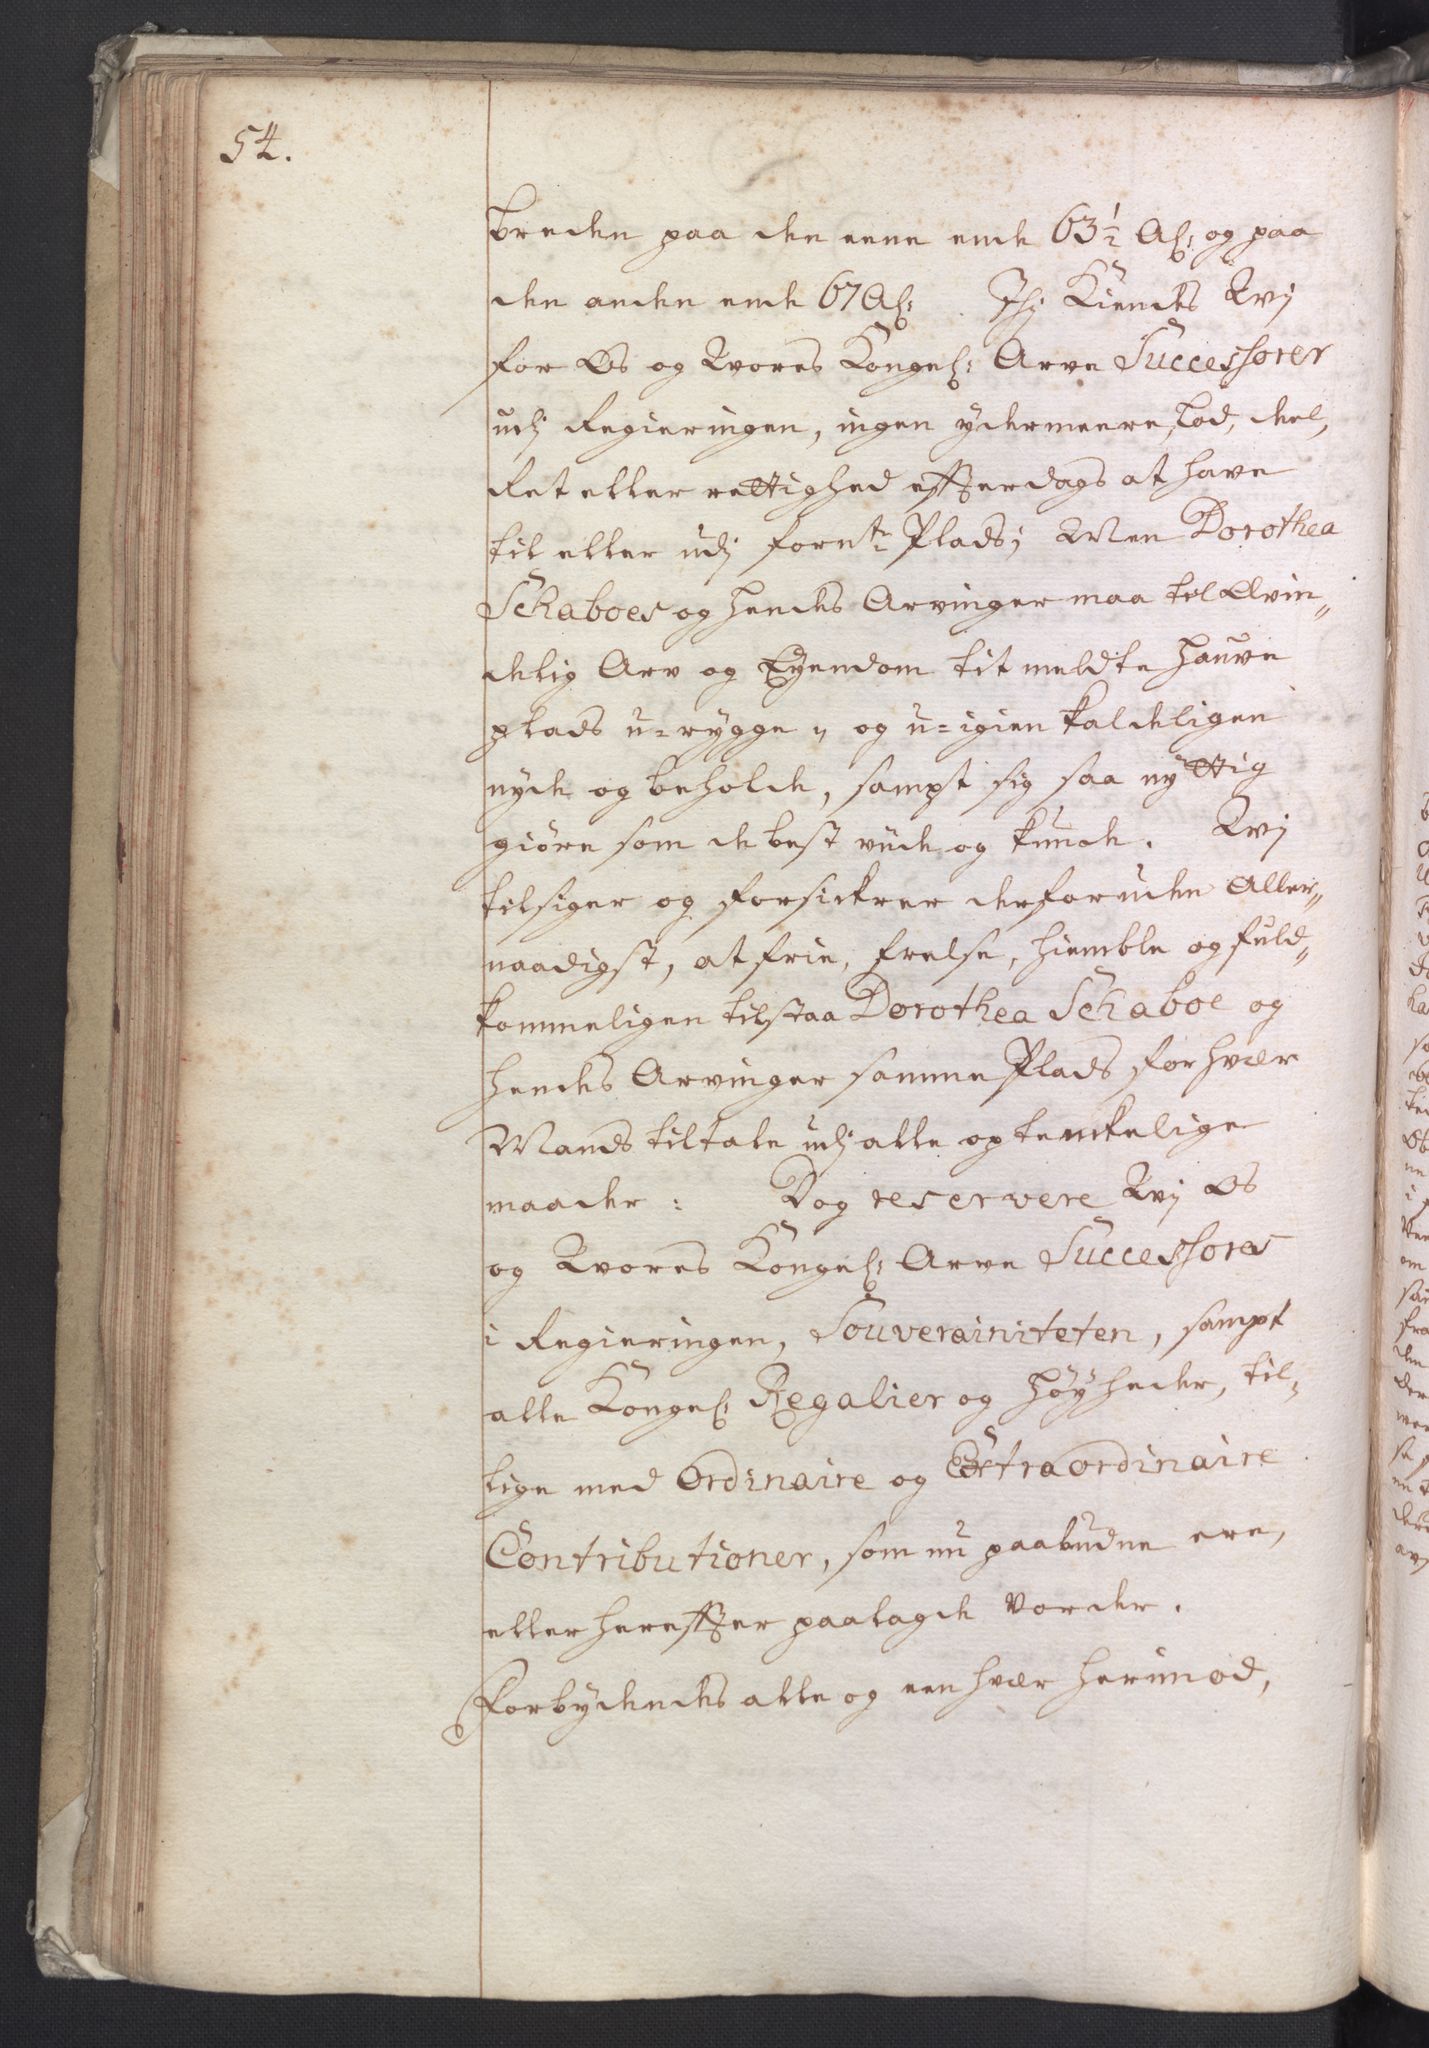 54.
breden paa den eene ende 63½ Al: og paa
den anden ende 67 Al: Thj Kiendes Wij
for Os og Wores Kongel: Arve Successorer
udj Regieringen, ingen ydermeere, Lod, deel,
Ret eller rettighed effterdags at have
til eller udj fornte Plads; Men Dorothea
Schaboes og hendes Arvinger maa til Ævin„
delig Arv og Eyendom titmeldte hauve
plads u-rygge„ og u-igienkaldeligen
nyde og beholde, sampt sig saa nyttig
giöre som de best viide og kunde. Wij
tilsiger og forsickrer derforuden Aller„
naadigst, at frie, frelse, hiemble og fuld„
kommeligen tilstaa Dorothea Schaboe og
hendes Arvinger samme Plads for hver
Mands tiltale udj alle optenckelige
maader: Dog reservere Wij Os
og Wores Kongel: Arve Successores
i Regieringen, Souverainiteten, sampt
alle Kongel: Regalier og Höyheder, til„
lige med Ordinaire og Extraordinaire
Contributioner, som nu paabudne ere,
eller hereffter paalagde vorder.
Forbydendes alle og een hver herimod,